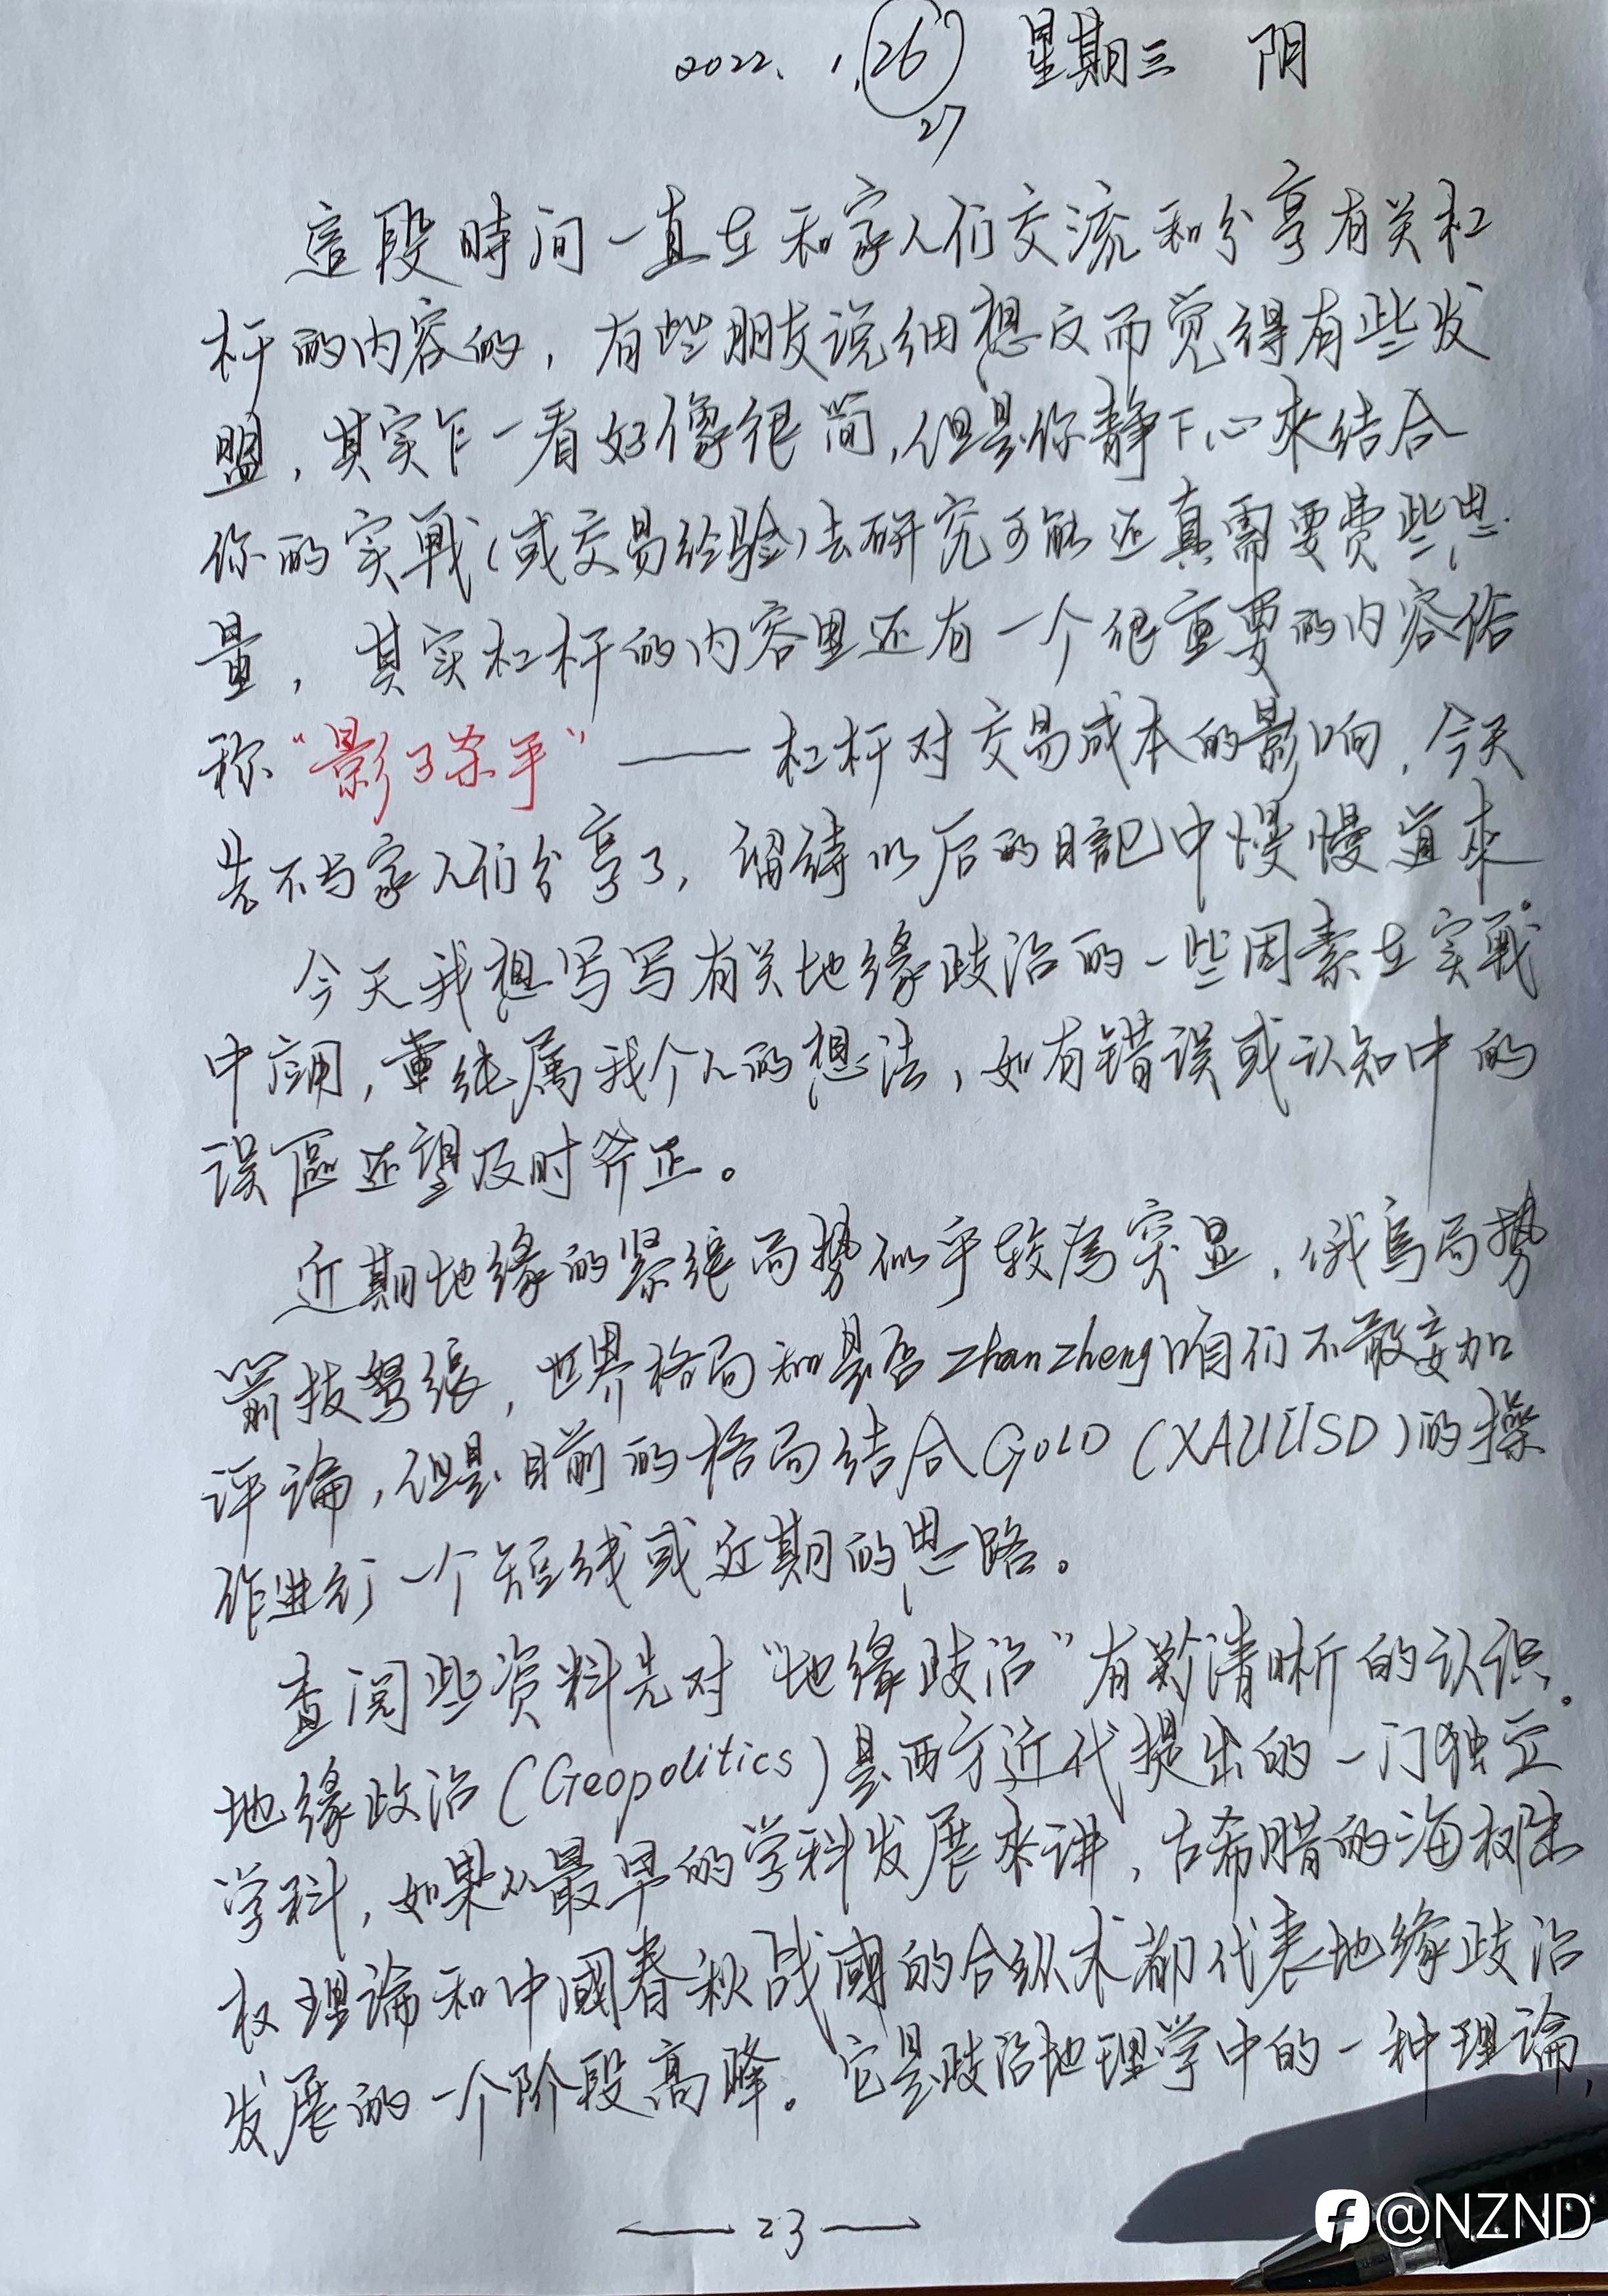 2022.1.26 星期三 阴
27
這段時间一直在和家人们交流和分享有关杠
杆的内容的，有些朋友说细想反而觉得有些发
盟，其实乍一看好像很简，但是你静下心来结合
你的实戰（或交易经验）去研究可能还真需要费些思
量，其实杠杆的内容里还有一个很重要的内容俗
称“影子杀手”——杠杆对交易成本的影响，今天
先不与家人们分享了，留待以后的日記中慢慢道来。
今天我想写写有关地缘政治的一些因素在实戰
中应用，单纯属我个人的想法，如有错误或认知中的
误區还望及时斧正。
近期地缘的紧張局势似乎较為突显，俄乌局势
箭拔弩張，世界格局和是否zhanzheng咱们不敢妄加
评論，但是目前的格局结合GOLD（XAUUSD）的操
作进行一个短线或近期的思路。
查阅些资料先对“地缘政治”有清晰的认识。
地缘政治（Geopolitics）是西方近代提出的一门独立
学科，如果从最早的学科发展来讲，古希腊的海权陆
权理論和中國春秋战國的合纵术都代表地缘政治
发展的一个阶段高峰。它是政治地理学中的一种理論，
—23—
@NZND